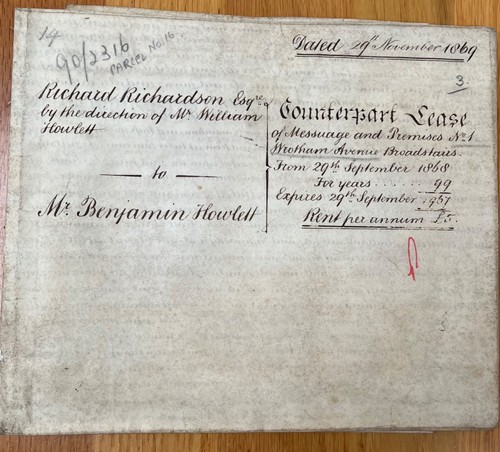 14
90/2316
PARCEL No. 16
Dated 29th November 1869
3.
Richard Richardson Esqre
by the direction of Mr. William
Howlett
to
Mr. Benjamin Howlett
Counterpart Lease
of Messuage and Premises No. 1
Wrotham Avenue Broadstairs.
From 29th September 1868
For years ...... 99
Expires 29th September 1967
Rent per annum £5.